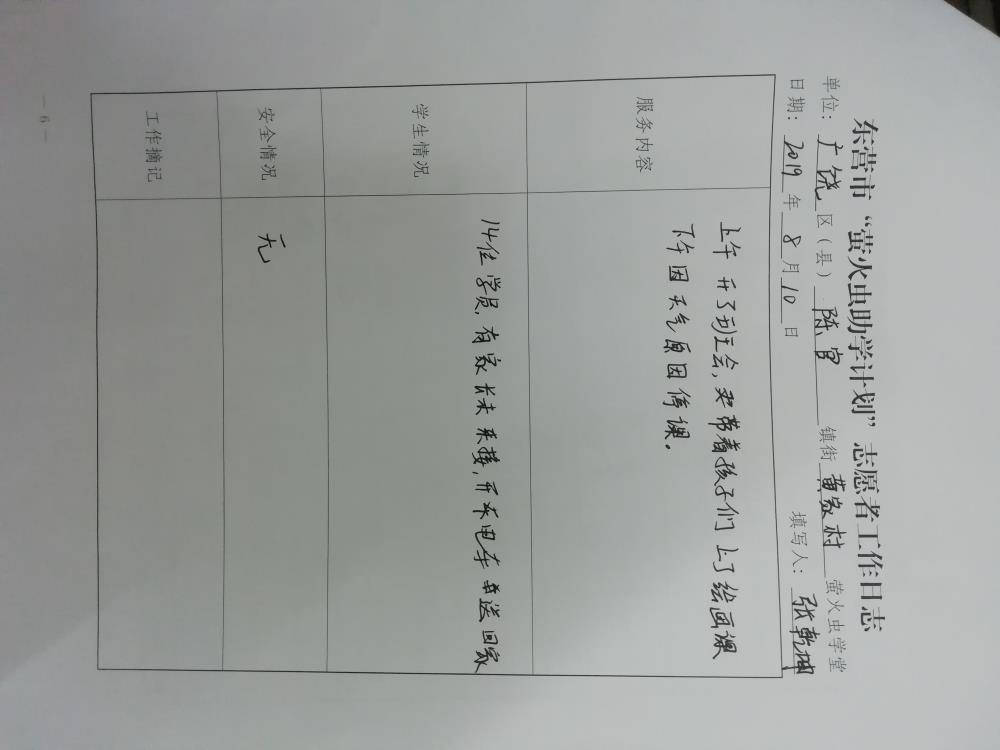 东营市“萤火虫助学计划”志愿者工作日志
单位：广饶区（县）陈官镇街黄家村萤火虫学堂
日期：2019年8月10日 填写人：张乾坤
服务内容
上午开了班会，带着孩子们上了绘画课
下午因天气原因停课。
学生情况
14位学员，有家长未来接，开电车送回家
安全情况
无
工作摘记
— 6 —